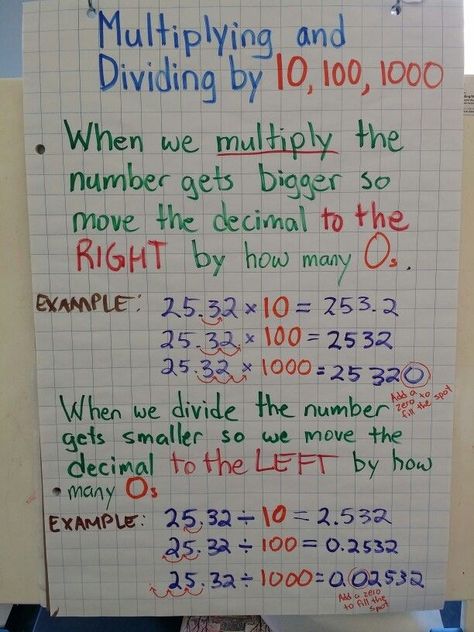 Multiplying and
Dividing by 10, 100, 1000
When we multiply the
number gets bigger so
move the decimal to the
RIGHT by how many 0s.
EXAMPLE: 25.32 × 10 = 253.2
25.32 × 100 = 2532
25.32 × 1000 = 25320
Add a
zero to
fill the spot
When we divide the number
gets smaller so we move the
decimal to the LEFT by how
many 0s
EXAMPLE: 25.32 ÷ 10 = 2.532
25.32 ÷ 100 = 0.2532
25.32 ÷ 1000 = 0.02532
Add a zero
to fill the
spot